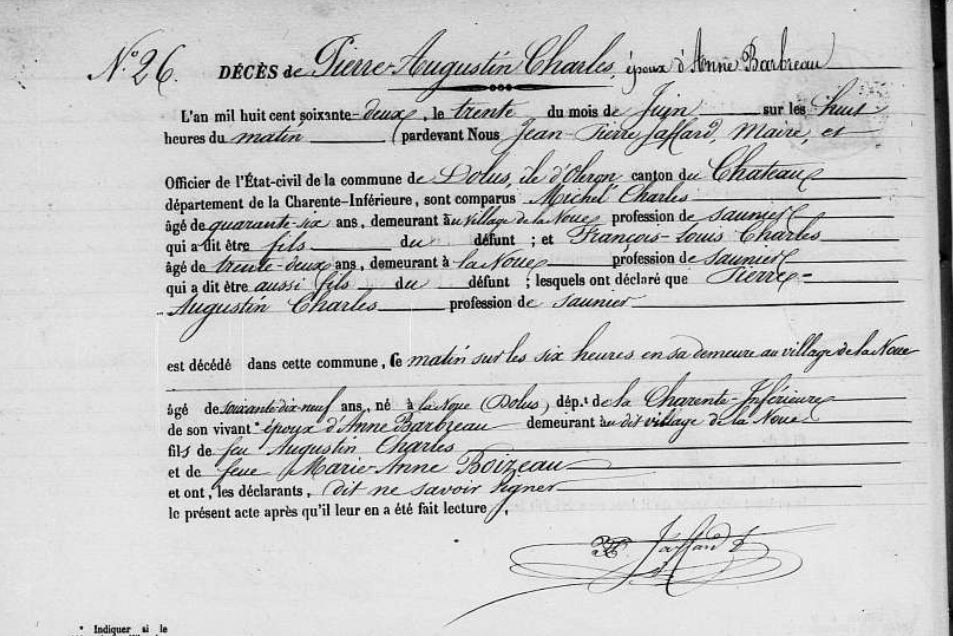 N.º 26. DÉCÈS de Pierre-Augustin Charles, époux d'Anne Barbreau
L'an mil huit cent soixante-deux, le trente du mois de Juin sur les huit
heures du matin (pardevant Nous Jean-Pierre Jaffard, Maire, et
Officier de l'État-civil de la commune de Dolus, île d'Oleron canton du Chateau
département de la Charente-Inférieure, sont comparus Michel Charles
âgé de quarante-six ans, demeurant au village de la Noue profession de saunier
qui a dit être fils du défunt ; et François-Louis Charles
âgé de trente-deux ans, demeurant à la Noue profession de saunier
qui a dit être aussi fils du défunt ; lesquels ont déclaré que Pierre-
Augustin Charles profession de saunier
est décédé dans cette commune, le matin sur les six heures en sa demeure au village de la Noue
âgé de soixante-dix-neuf ans, né à la Noue (Dolus, dép.t de la Charente-Inférieure
de son vivant * époux d'Anne Barbreau demeurant au dit village de la Noue
fils de feu Augustin Charles
et de feue Marie-Anne Boizeau
et ont, les déclarants, dit ne savoir signer
le présent acte après qu'il leur en a été fait lecture.
Jaffard
* Indiquer si le